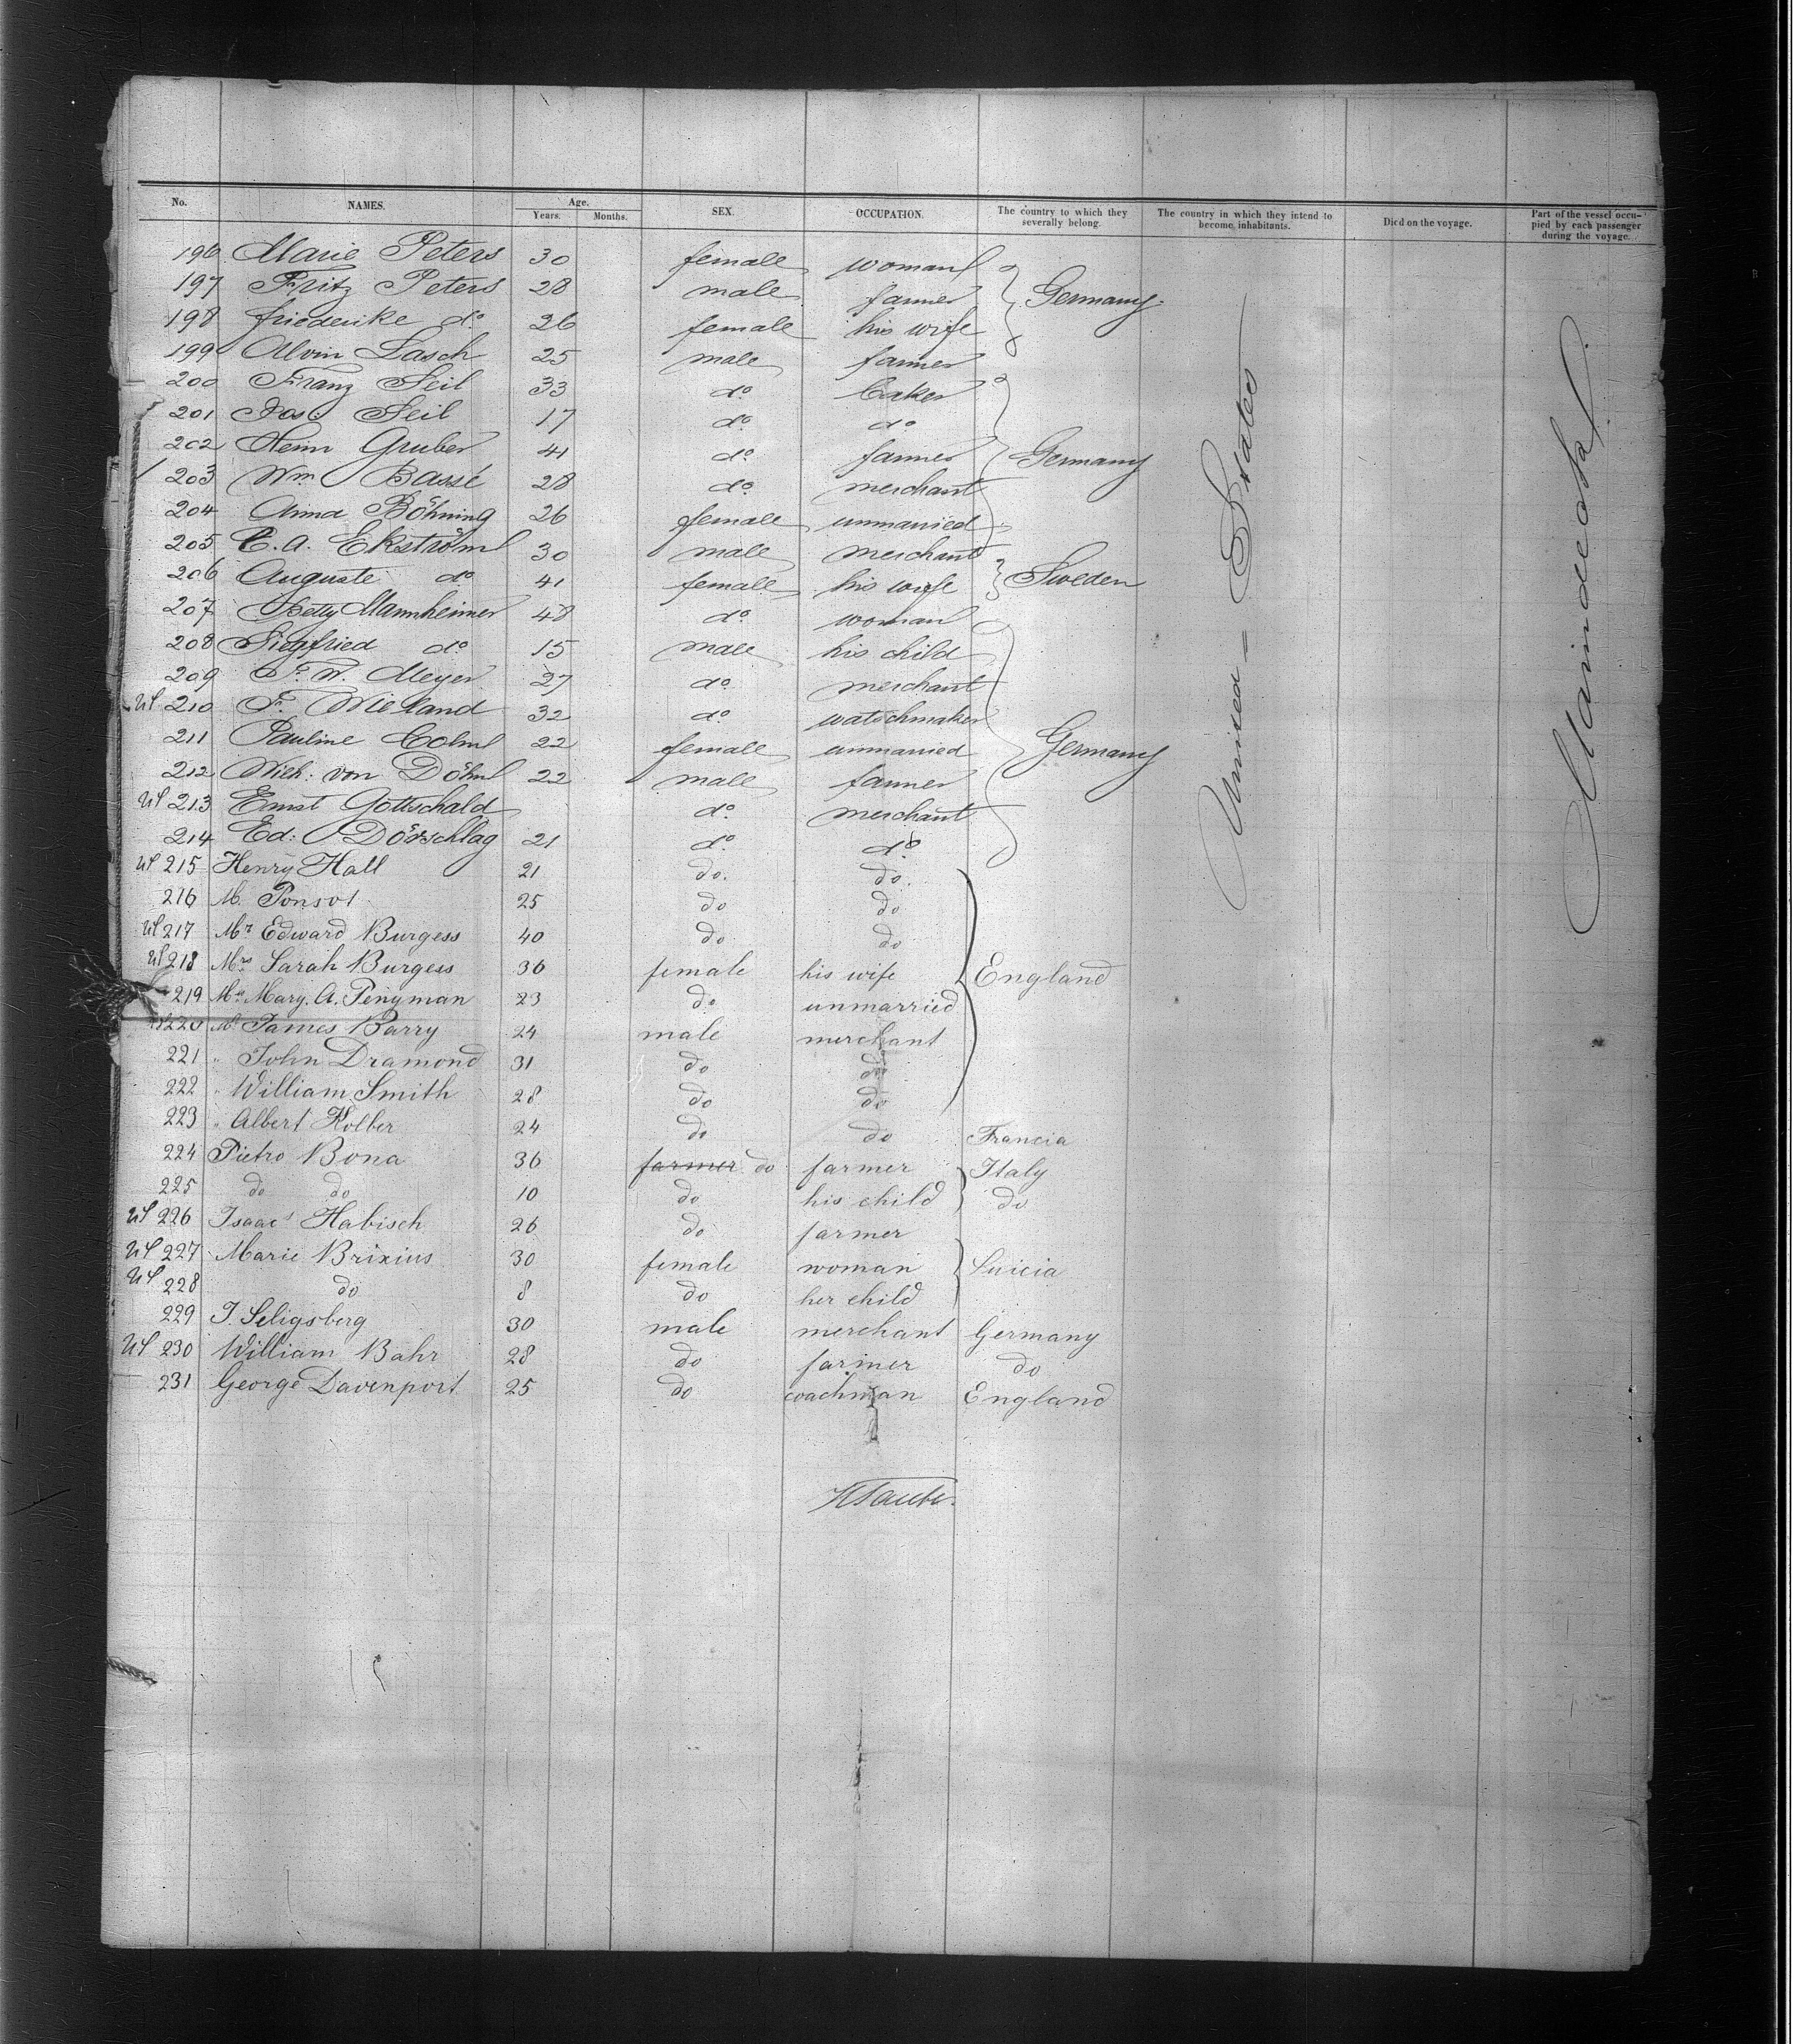 No. NAMES. Age. Years. Months. SEX. OCCUPATION. The country to which they severally belong. The country in which they intend to become inhabitants. Died on the voyage. Part of the vessel occupied by each passenger during the voyage.
196 Marie Peters 30 female woman
197 Fritz Peters 28 male farmer Germany.
198 Friederike do 26 female his wife
199 Alvin Lasch 25 male farmer
200 Franz Seil 33 do baker
201 Jos. Seil 17 do do
202 Heinr Gruber 41 do farmer Germany
203 Wm Bassé 28 do merchant
204 Anna Böhning 26 female unmarried
205 C. A. Ekström 30 male merchant
206 Auguste do 41 female his wife Sweden
207 Betty Mannheimer 48 do woman
208 Siegfried do 15 male his child
209 F. W. Meyer 27 do merchant
US 210 F. Wieland 32 do watschmaker
211 Pauline Cohn 22 female unmarried Germany
212 Wilh: von Döhn 22 male farmer
US 213 Ernst Gottschald do merchant
214 Ed: Dörschlag 21 do do
US 215 Henry Hall 21 do. do.
216 M. Ponsot 25 do do
US 217 Mr Edward Burgess 40 do do
US 218 Mrs Sarah Burgess 36 female his wife England
219 Mary. A. Penyman 23 do unmarried
220 Mr James Barry 24 male merchant
221 " John Dramond 31 do do
222 " William Smith 28 do do
223 " Albert Holber 24 do do Francia
224 Pietro Bona 36 farmer do farmer Italy
225 do do 10 do his child do
US 226 Isaac Habisch 26 do farmer
US 227 Marie Brixius 30 female woman Suicia
US 228 do 8 do her child
229 J. Seligsberg 30 male merchant Germany
US 230 William Bahr 28 do farmer do
231 George Davenport 25 do coachman England
United = States